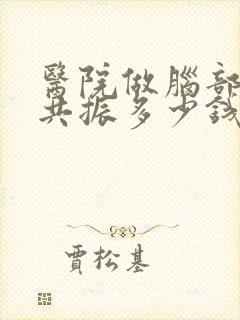 醫院做腦部
共振多少錢
賈松基